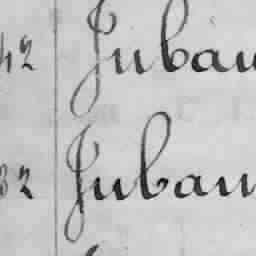 42 Juban
32 Juban